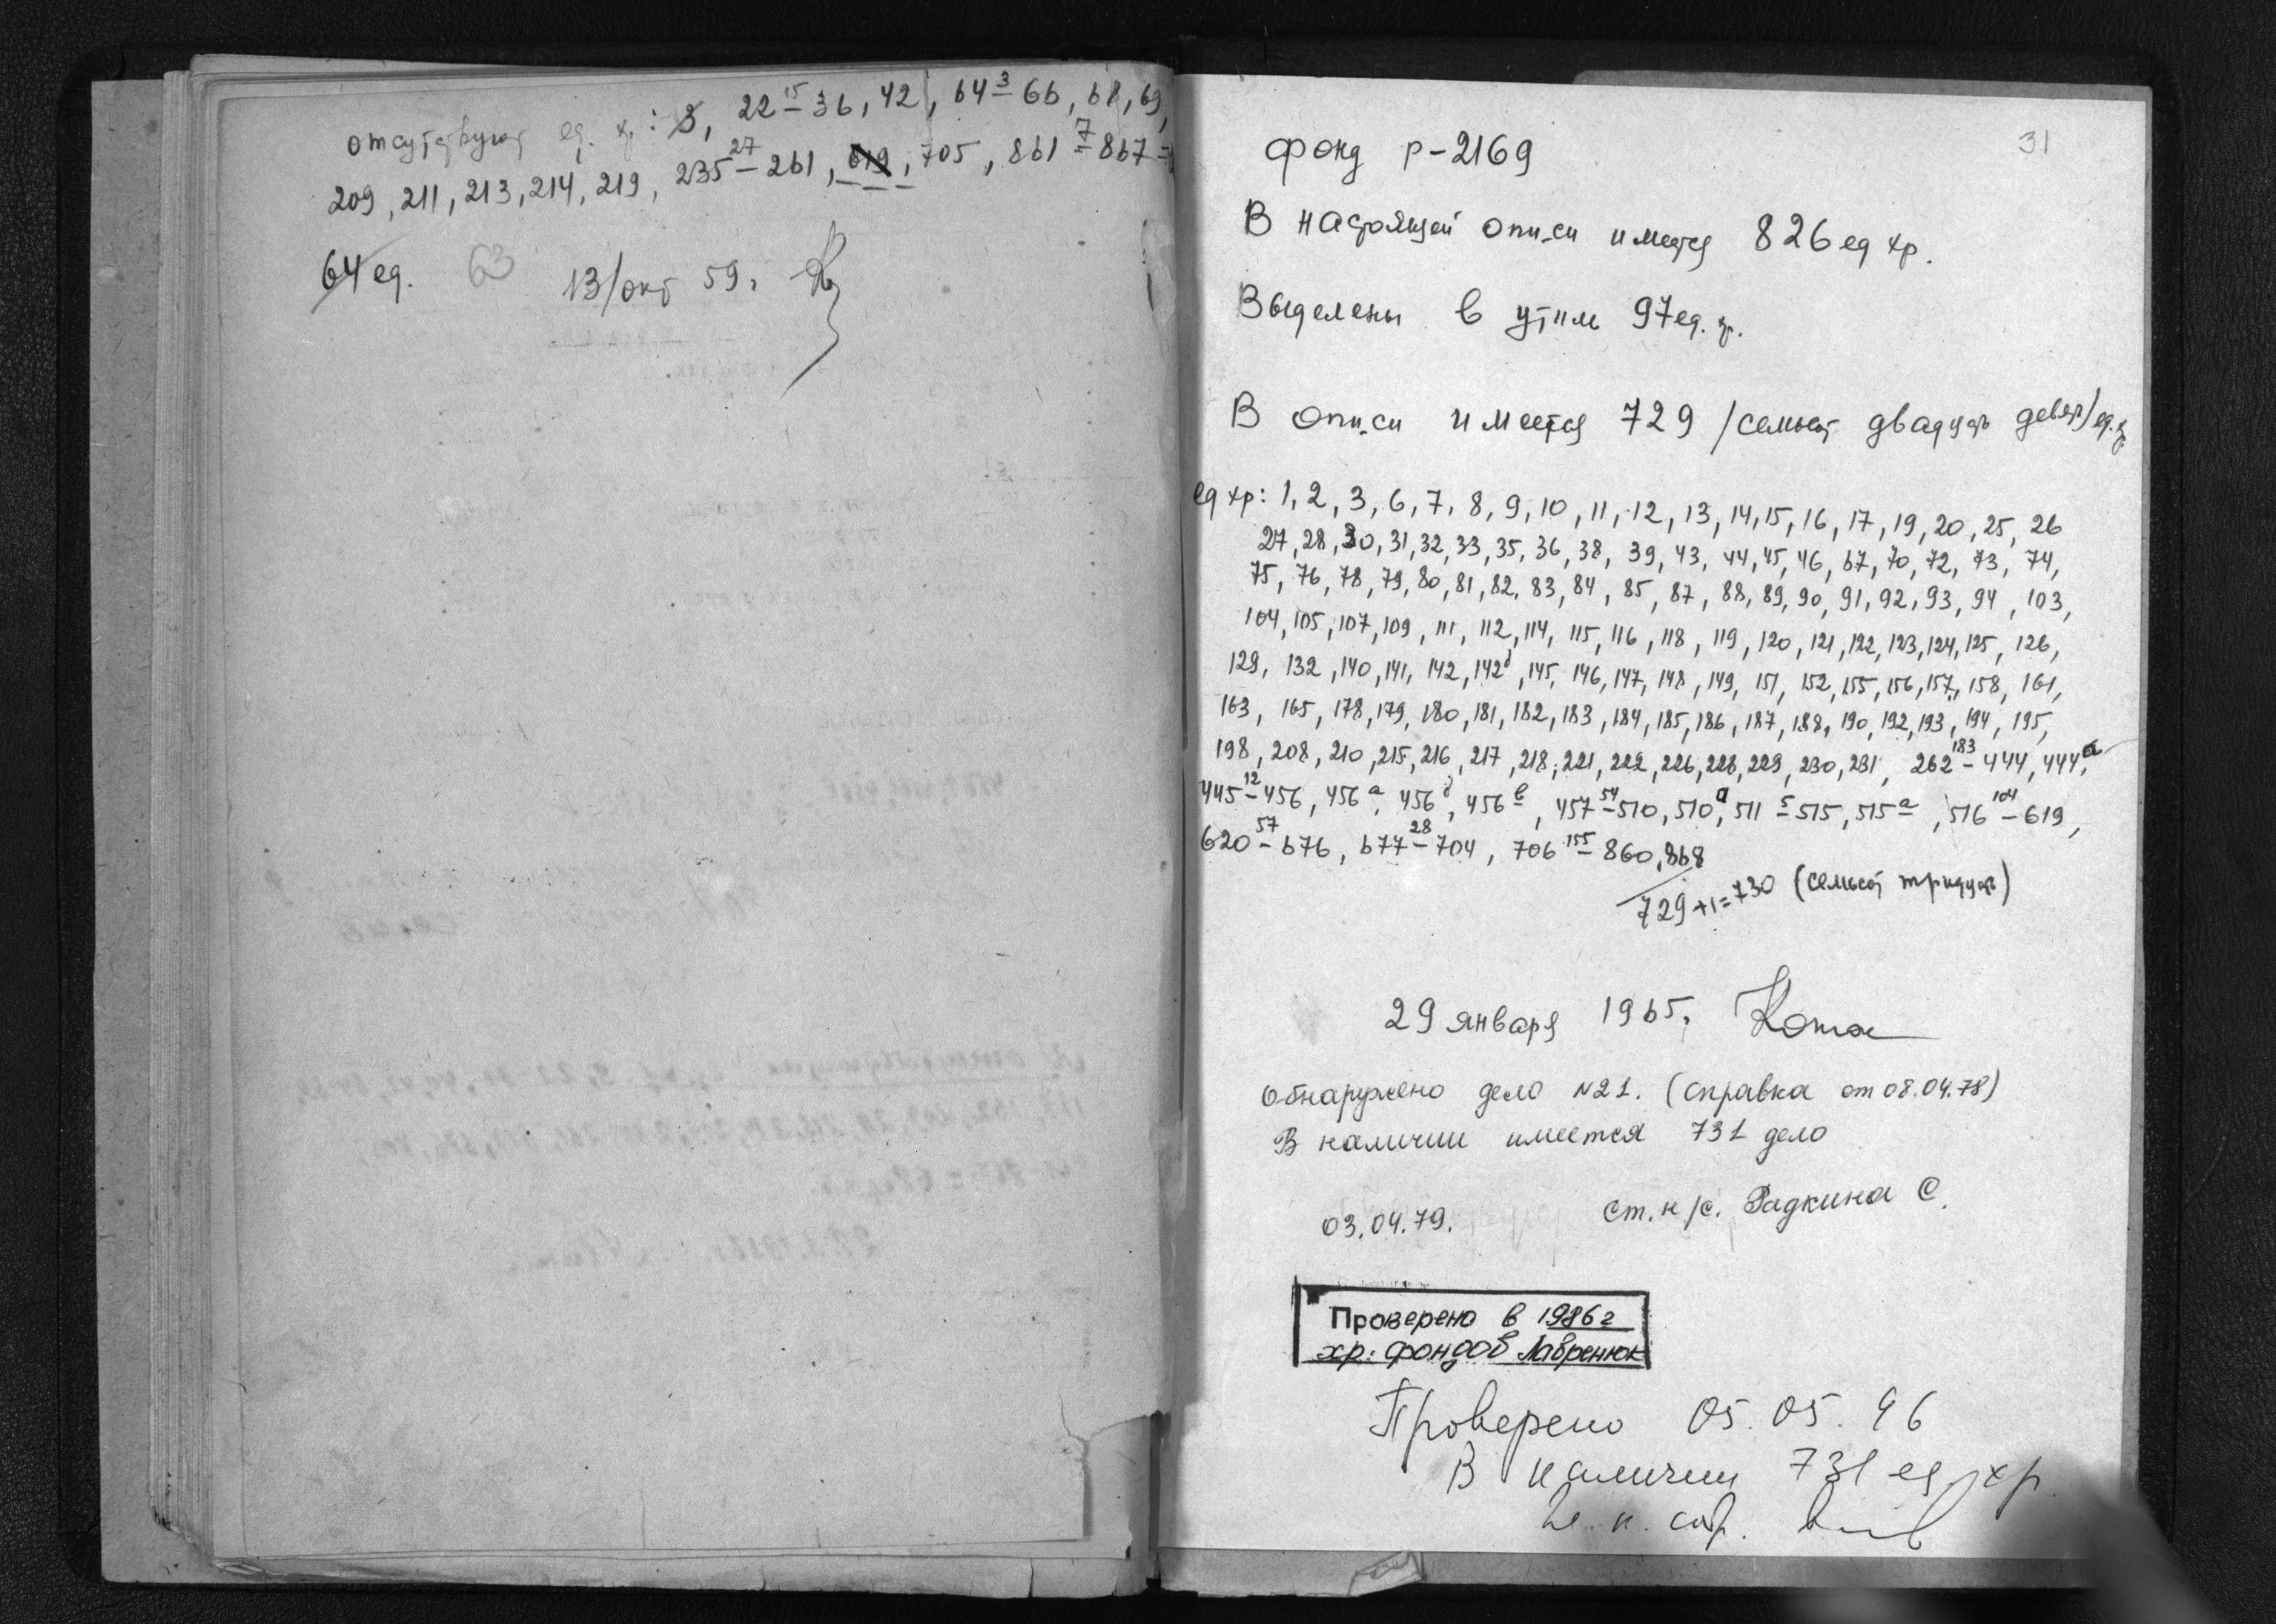 отсутствуют ед. хр.: 3, 22 15– 36, 42, 64 3– 66, 68, 69,
209, 211, 213, 214, 219, 235 27– 261, 619, 705, 861 7– 867
64 ед. 63 13/окт 59г.
31
фонд Р-2169
В настоящей описи имеется 826 ед хр.
Выделены в утиль 97 ед. хр.
В описи имеется 729 /семьсот двадцать девять/ ед. хр.
ед хр: 1, 2, 3, 6, 7, 8, 9, 10, 11, 12, 13, 14, 15, 16, 17, 19, 20, 25, 26
27, 28, 30, 31, 32, 33, 35, 36, 38, 39, 43, 44, 45, 46, 67, 70, 72, 73, 74,
75, 76, 78, 79, 80, 81, 82, 83, 84, 85, 87, 88, 89, 90, 91, 92, 93, 94, 103,
104, 105, 107, 109, 111, 112, 114, 115, 116, 118, 119, 120, 121, 122, 123, 124, 125, 126,
129, 132, 140, 141, 142, 142б, 145, 146, 147, 148, 149, 151, 152, 155, 156, 157, 158, 161,
163, 165, 178, 179, 180, 181, 182, 183, 184, 185, 186, 187, 188, 190, 192, 193, 194, 195,
198, 208, 210, 215, 216, 217, 218, 221, 222, 226, 228, 229, 230, 231, 262 183– 444, 444а,
445 12– 456, 456а, 456б, 456в, 457 54– 510, 510а, 511 5– 515, 515а, 516 104– 619,
620 57– 676, 677 28– 704, 706 155– 860, 868
729+1=730 (семьсот тридцать)
29 января 1965.
Обнаружено дело №21. (справка от 08.04.78)
В наличии имеется 731 дело
03.04.79. ст. н/с. Радкина С.
Проверено в 1986г
хр: фондов Лавренюк
Проверено 05.05.96
В наличии 731 ед хр